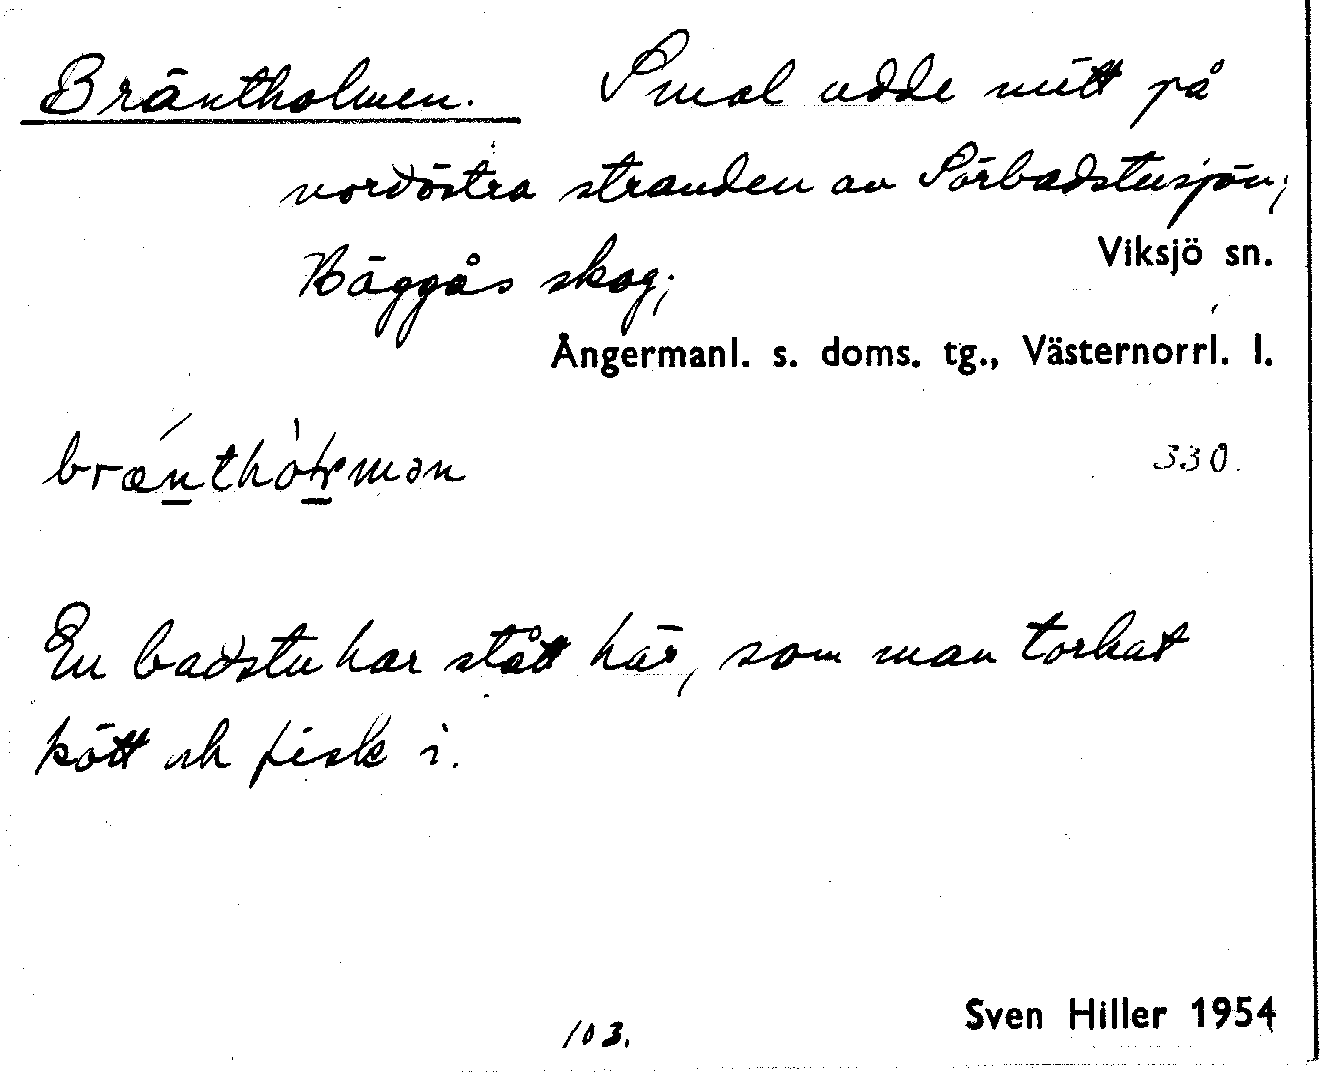 Bräntholmen. Smal udde mitt på
nordöstra stranden av Sörbadstusjön;
Häggås skog;
Viksjö sn.
Ångermanl. s. doms. tg., Västernorrl. l.
330.
En badstu har stått här, som man torkat
kött och fisk i.
103.
Sven Hiller 1954